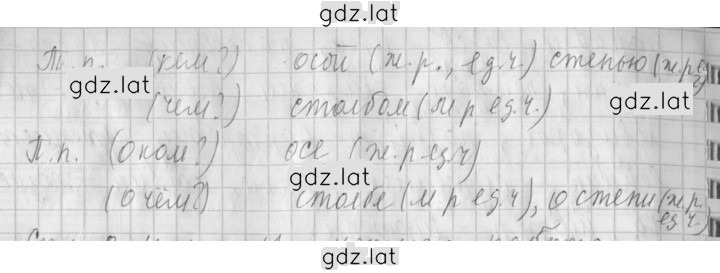 gdz.lat
Т.п. (кем?) осой (ж.р., ед.ч.) степью (ж.р ед
gdz.lat
(чем?) столбом (м.р ед.ч.)
gdz.lat
П.п. (о ком?) осе (ж.р ед.ч)
gdz.lat
(о чём?) столбе (м р ед.ч), о степи (ж.р ед.ч.)
gdz.lat